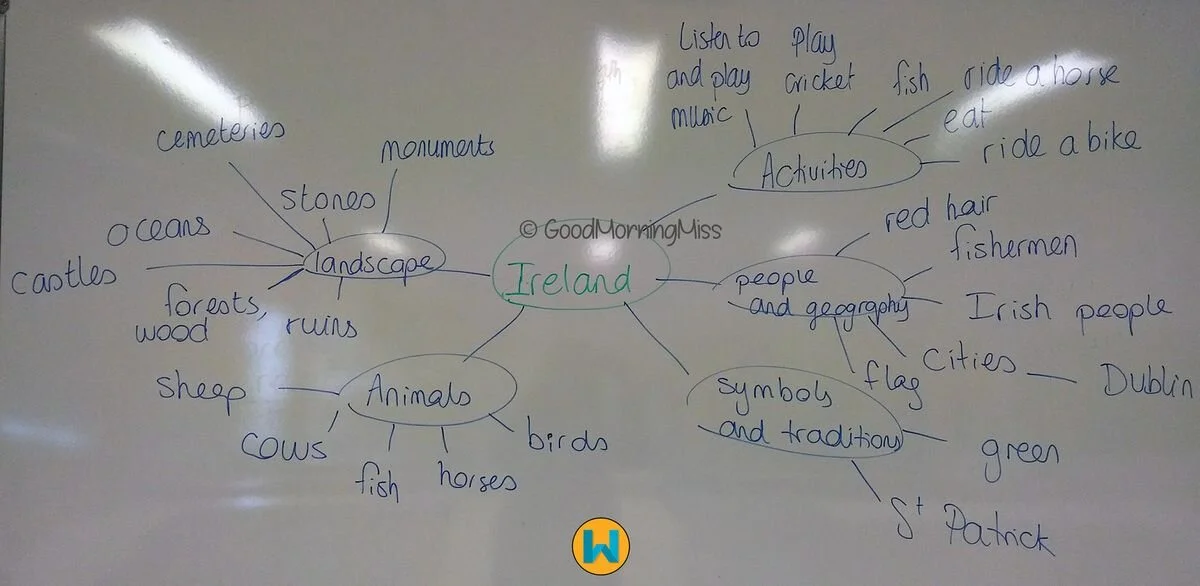 Listen to
and play
music
play
cricket
fish
ride a horse
eat
ride a bike
Activities
cemeteries
monuments
stones
oceans
castles
landscape
forests,
wood
ruins
© GoodMorningMiss
Ireland
red hair
fishermen
people
and geography
Irish people
flag
cities
Dublin
sheep
Animals
cows
fish
horses
birds
symbols
and traditions
green
St Patrick
W